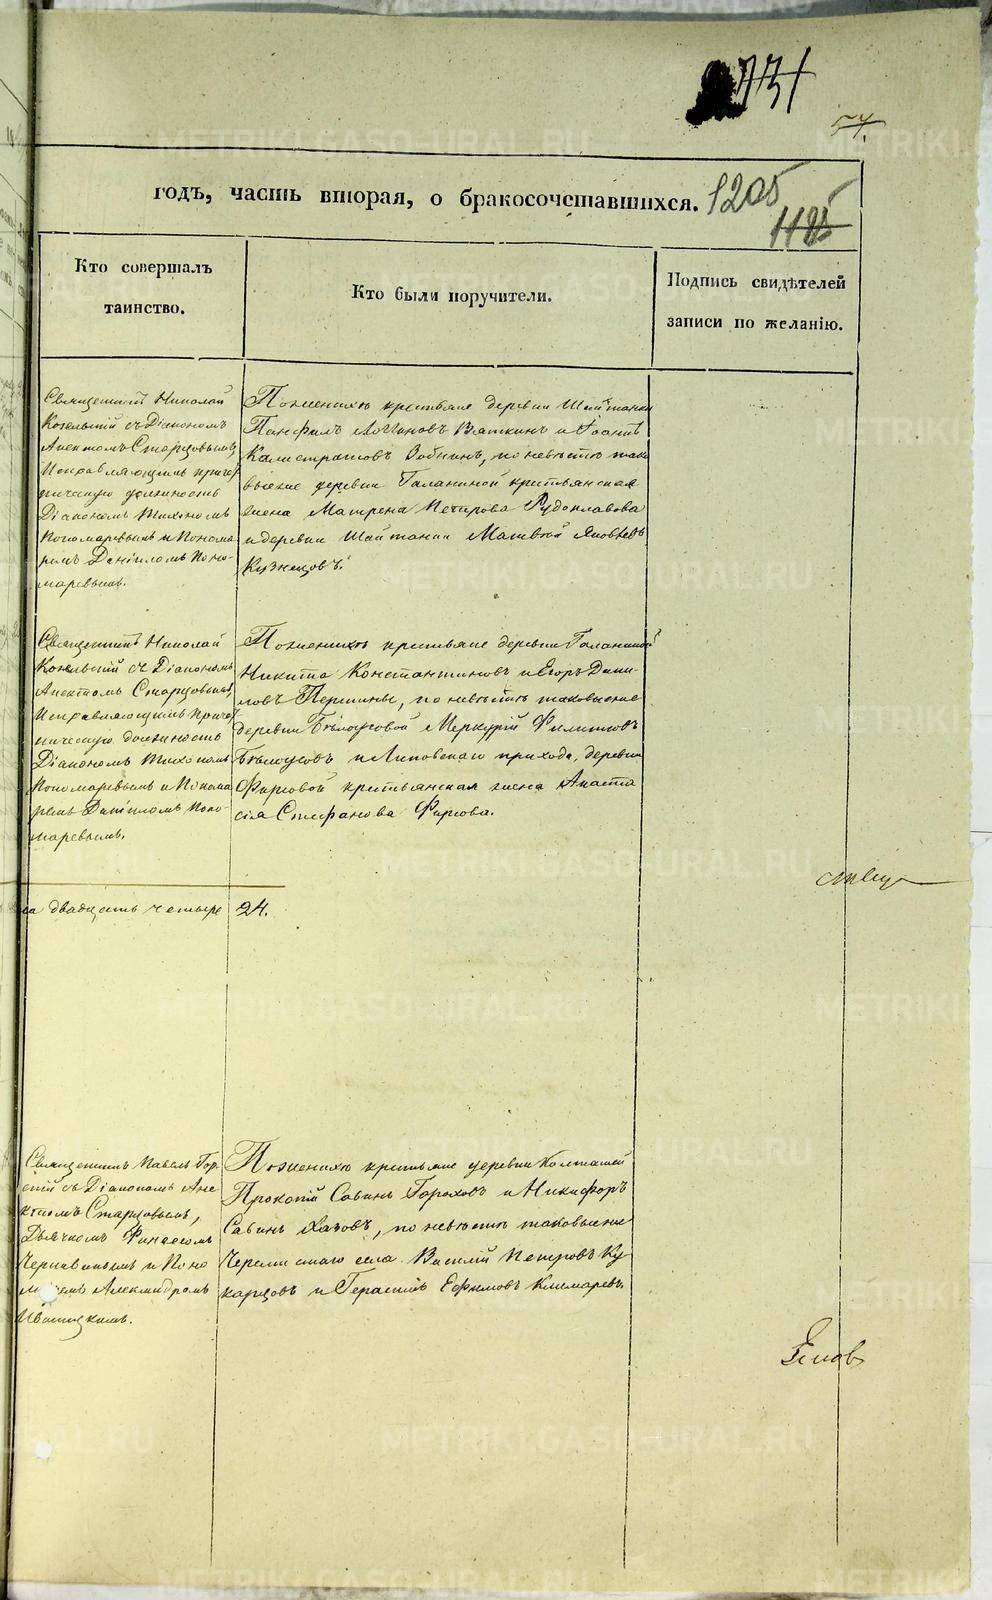 731
54
годъ, часть вторая, о бракосочетавшихся. 1205
1185
Кто совершалъ
таинство.
Кто были поручители.
Подпись свидѣтелей
записи по желанію.
Священникъ Николай
Козельскій съ Діакономъ
Анектомъ Старцовымъ,
Исправляющимъ причет
ническую должность
Діакономъ Тихономъ
Пономаревымъ и Понома
ремъ Даніиломъ Поно-
маревымъ.
По женихѣ крестьяне деревни Шайтанки
Панфилъ Логиновъ Вяткинъ и Іоаннъ
Калистратовъ Бобнинъ, по невѣстѣ тако
выеже деревни Галаниной крестьянская
жена Матрена Петрова Рудоплавова
и деревни Шайтанки Матвей Яковлевъ
Кузнецовъ.
Священникъ Николай
Козельскій съ Діакономъ
Анектомъ Старцовымъ,
Исправляющимъ Причет
ническую должность
Діакономъ Тихономъ
Пономаревымъ и Понома
ремъ Даніиломъ Поно-
маревымъ.
По женихѣ крестьяне деревни Галаниной
Никита Константиновъ и Егоръ Дани-
ловъ Першины, по невѣстѣ таковыеже
деревни Бѣлоусовой Меркурій Филиповъ
Бѣлоусовъ и Липовскаго прихода, деревни
Фирсовой крестьянская жена Анаста
сія Стефанова Фирсова.
са двадцать четыре 24.
Священникъ Павелъ Гор-
скій съ Діакономъ Ане
ктомъ Старцовымъ,
Дьячкомъ Финеесомъ
Чернавинымъ и Поно
маремъ Александромъ
Ивановскимъ.
По женихѣ крестьяне деревни Колташей
Прокопій Савинъ Гороховъ и Никифоръ
Савинъ Хазовъ, по невѣстѣ таковыеже
Черемисскаго села Василій Петровъ Ку
карцовъ и Герасимъ Ефимовъ Клемаревъ.